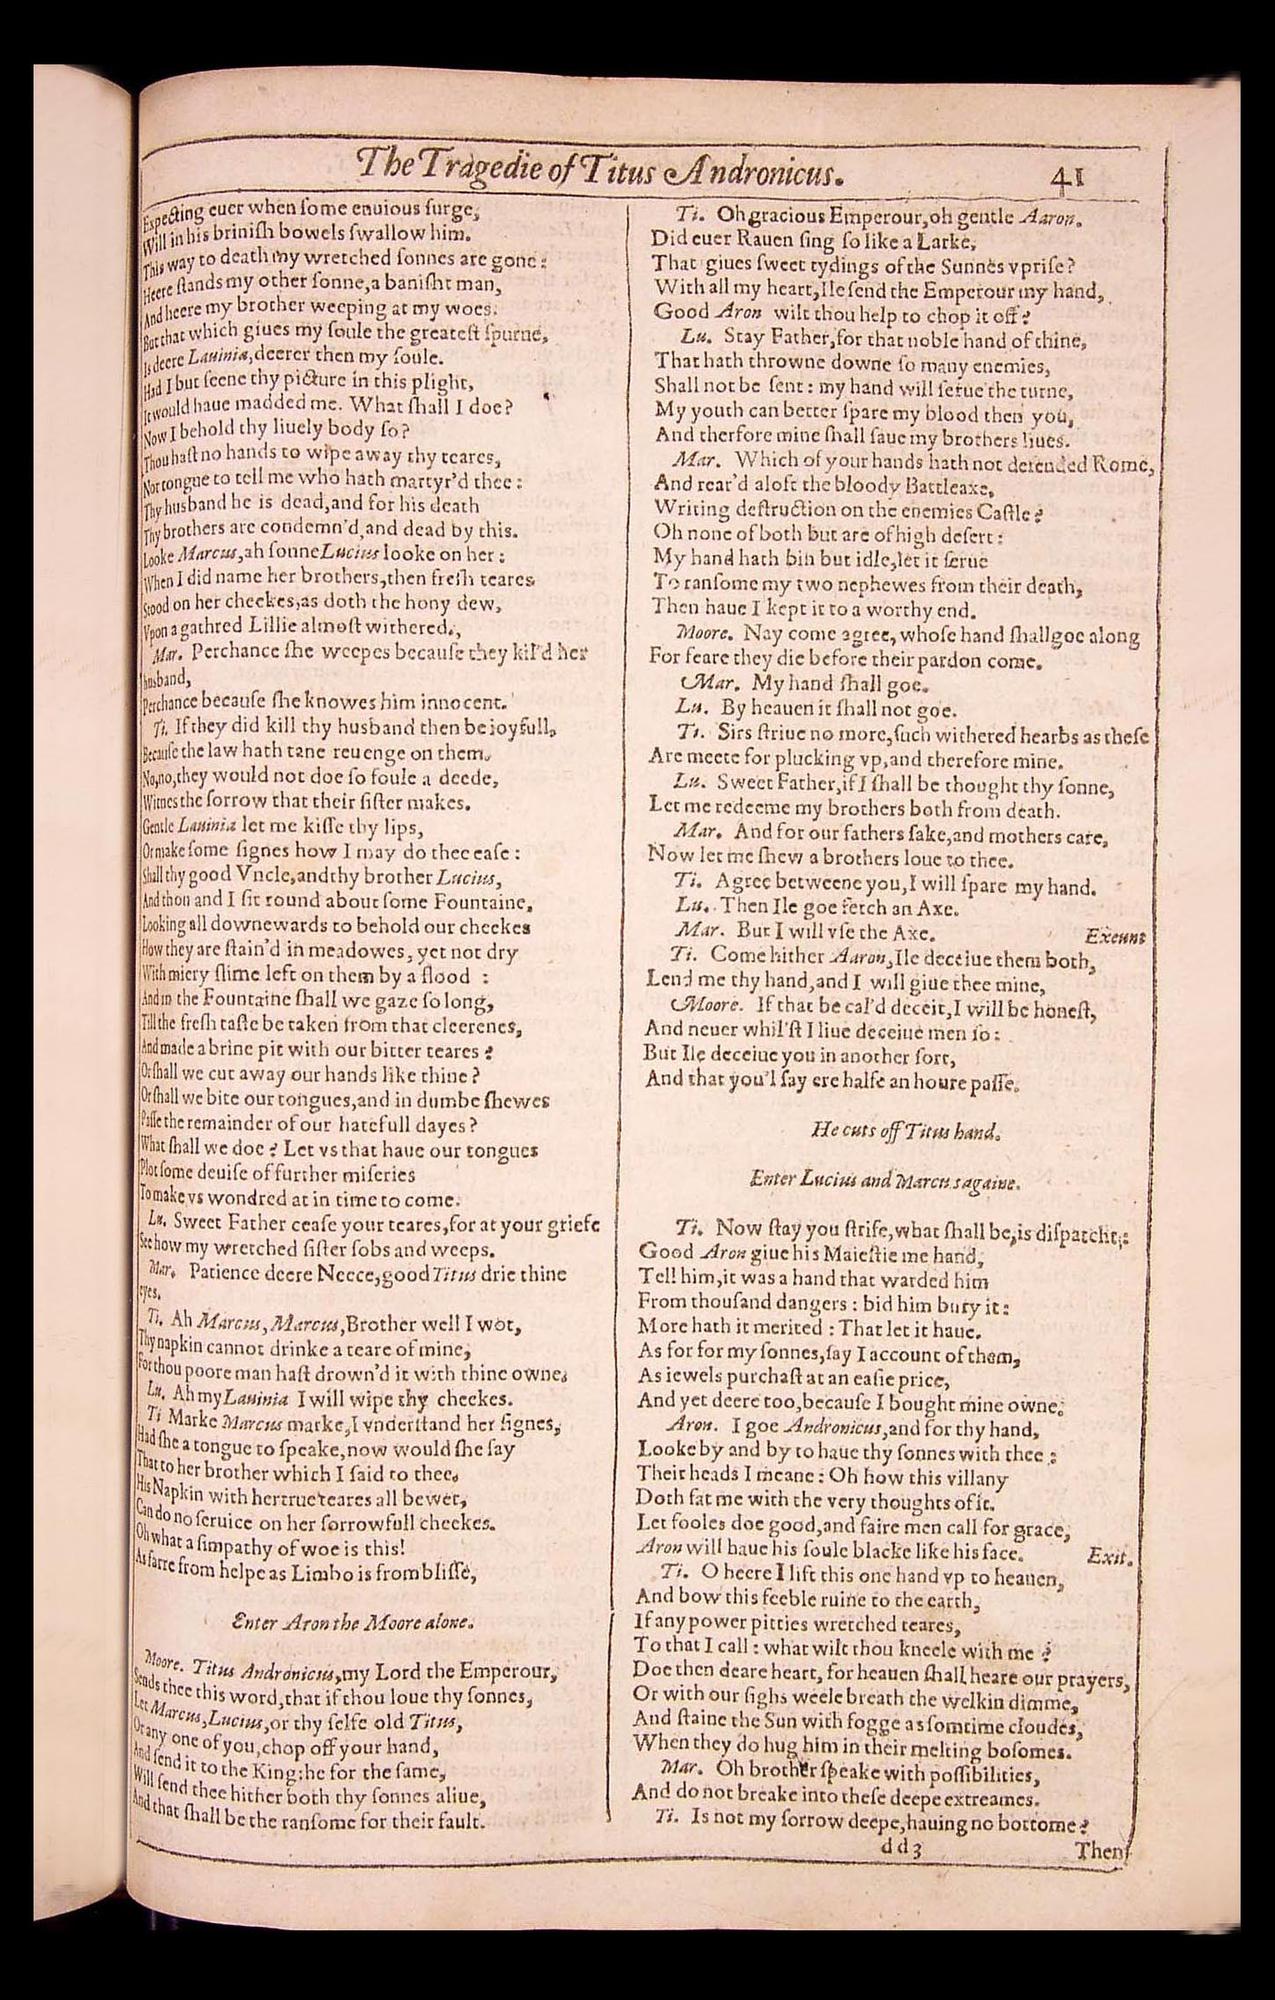 The Tragedie of Titus Andronicus. 41
Expecting euer when ſome enuious ſurge,
Will in his briniſh bowels ſwallow him.
This way to death my wretched ſonnes are gone:
Heere ſtands my other ſonne,a baniſht man,
And heere my brother weeping at my woes.
But that which giues my ſoule the greateſt ſpurne,
Is deere Lauinia,deerer then my ſoule.
Had I but ſeene thy picture in this plight,
It would haue madded me. What ſhall I doe?
Now I behold thy liuely body ſo?
Thou haſt no hands to wipe away thy teares,
Nor tongue to tell me who hath martyr'd thee:
Thy husband he is dead,and for his death
Thy brothers are condemn'd,and dead by this.
Looke Marcus,ah ſonne Lucius looke on her:
When I did name her brothers,then freſh teares
Stood on her cheekes,as doth the hony dew,
Vpon a gathred Lillie almoſt withered.,
Mar. Perchance ſhe weepes becauſe they kil'd her
husband,
Perchance becauſe ſhe knowes him innocent.
Ti. If they did kill thy husband then be ioyfull,
Becauſe the law hath tane reuenge on them.
No,no,they would not doe ſo foule a deede,
Witnes the ſorrow that their ſiſter makes.
Gentle Lauinia let me kiſſe thy lips,
Or make ſome ſignes how I may do thee eaſe:
Shall thy good Vncle,and thy brother Lucius,
And thou and I ſit round about ſome Fountaine,
Looking all downewards to behold our cheekes
How they are ſtain'd in meadowes, yet not dry
With miery ſlime left on them by a flood :
And in the Fountaine ſhall we gaze ſo long,
Till the freſh taſte be taken from that cleerenes,
And made a brine pit with our bitter teares?
Or ſhall we cut away our hands like thine?
Or ſhall we bite our tongues,and in dumbe ſhewes
Paſſe the remainder of our hatefull dayes?
What ſhall we doe? Let vs that haue our tongues
Plot ſome deuiſe of further miſeries
To make vs wondred at in time to come.
Lu. Sweet Father ceaſe your teares,for at your griefe
See how my wretched ſiſter ſobs and weeps.
Mar. Patience deere Neece,good Titus drie thine
eyes.
Ti. Ah Marcus, Marcus,Brother well I wot,
Thy napkin cannot drinke a teare of mine,
For thou poore man haſt drown'd it with thine owne.
Lu. Ah my Lauinia I will wipe thy cheekes.
Ti Marke Marcus marke,I vnderſtand her ſignes,
Had ſhe a tongue to ſpeake,now would ſhe ſay
That to her brother which I ſaid to thee.
His Napkin with her true teares all bewet,
Can do no ſeruice on her ſorrowfull cheekes.
Oh what a ſimpathy of woe is this!
As farre from helpe as Limbo is from bliſſe,
Enter Aron the Moore alone.
Moore. Titus Andronicus,my Lord the Emperour,
Sends thee this word,that if thou loue thy ſonnes,
Let Marcus,Lucius,or thy ſelfe old Titus,
Or any one of you,chop off your hand,
And ſend it to the King:he for the ſame,
Will ſend thee hither both thy ſonnes aliue,
And that ſhall be the ranſome for their fault.
Ti. Oh gracious Emperour,oh gentle Aaron.
Did euer Rauen ſing ſo like a Larke,
That giues ſweet tydings of the Sunnes vpriſe?
With all my heart,Ile ſend the Emperour my hand,
Good Aron wilt thou help to chop it off?
Lu. Stay Father,for that noble hand of thine,
That hath throwne downe ſo many enemies,
Shall not be ſent: my hand will ſerue the turne,
My youth can better ſpare my blood then you,
And therfore mine ſhall ſaue my brothers liues.
Mar. Which of your hands hath not defended Rome,
And rear'd aloft the bloody Battleaxe,
Writing deſtruction on the enemies Caſtle?
Oh none of both but are of high deſert:
My hand hath bin but idle,let it ſerue
To ranſome my two nephewes from their death,
Then haue I kept it to a worthy end.
Moore. Nay come agree, whoſe hand ſhall goe along
For feare they die before their pardon come.
Mar. My hand ſhall goe.
Lu. By heauen it ſhall not goe.
Ti. Sirs ſtriue no more,ſuch withered hearbs as theſe
Are meete for plucking vp,and therefore mine.
Lu. Sweet Father,if I ſhall be thought thy ſonne,
Let me redeeme my brothers both from death.
Mar. And for our fathers ſake,and mothers care,
Now let me ſhew a brothers loue to thee.
Ti. Agree betweene you,I will ſpare my hand.
Lu. Then Ile goe fetch an Axe.
Mar. But I will vſe the Axe. Exeunt
Ti. Come hither Aaron,Ile deceiue them both,
Lend me thy hand,and I will giue thee mine,
Moore. If that be cal'd deceit,I will be honeſt,
And neuer whil'ſt I liue deceiue men ſo:
But Ile deceiue you in another ſort,
And that you'l ſay ere halfe an houre paſſe.
He cuts off Titus hand.
Enter Lucius and Marcus againe.
Ti. Now ſtay you ſtrife,what ſhall be,is diſpatcht:
Good Aron giue his Maieſtie me hand,
Tell him,it was a hand that warded him
From thouſand dangers: bid him bury it:
More hath it merited: That let it haue.
As for for my ſonnes,ſay I account of them,
As iewels purchaſt at an eaſie price,
And yet deere too,becauſe I bought mine owne.
Aron. I goe Andronicus,and for thy hand,
Looke by and by to haue thy ſonnes with thee:
Their heads I meane: Oh how this villany
Doth fat me with the very thoughts of it.
Let fooles doe good,and faire men call for grace,
Aron will haue his ſoule blacke like his face. Exit.
Ti. O heere I lift this one hand vp to heauen,
And bow this feeble ruine to the earth,
If any power pitties wretched teares,
To that I call: what wilt thou kneele with me?
Doe then deare heart, for heauen ſhall heare our prayers,
Or with our ſighs weele breath the welkin dimme,
And ſtaine the Sun with fogge as ſomtime cloudes,
When they do hug him in their melting boſomes.
Mar. Oh brother ſpeake with poſſibilities,
And do not breake into theſe deepe extreames.
Ti. Is not my ſorrow deepe,hauing no bottome?
dd3 Then